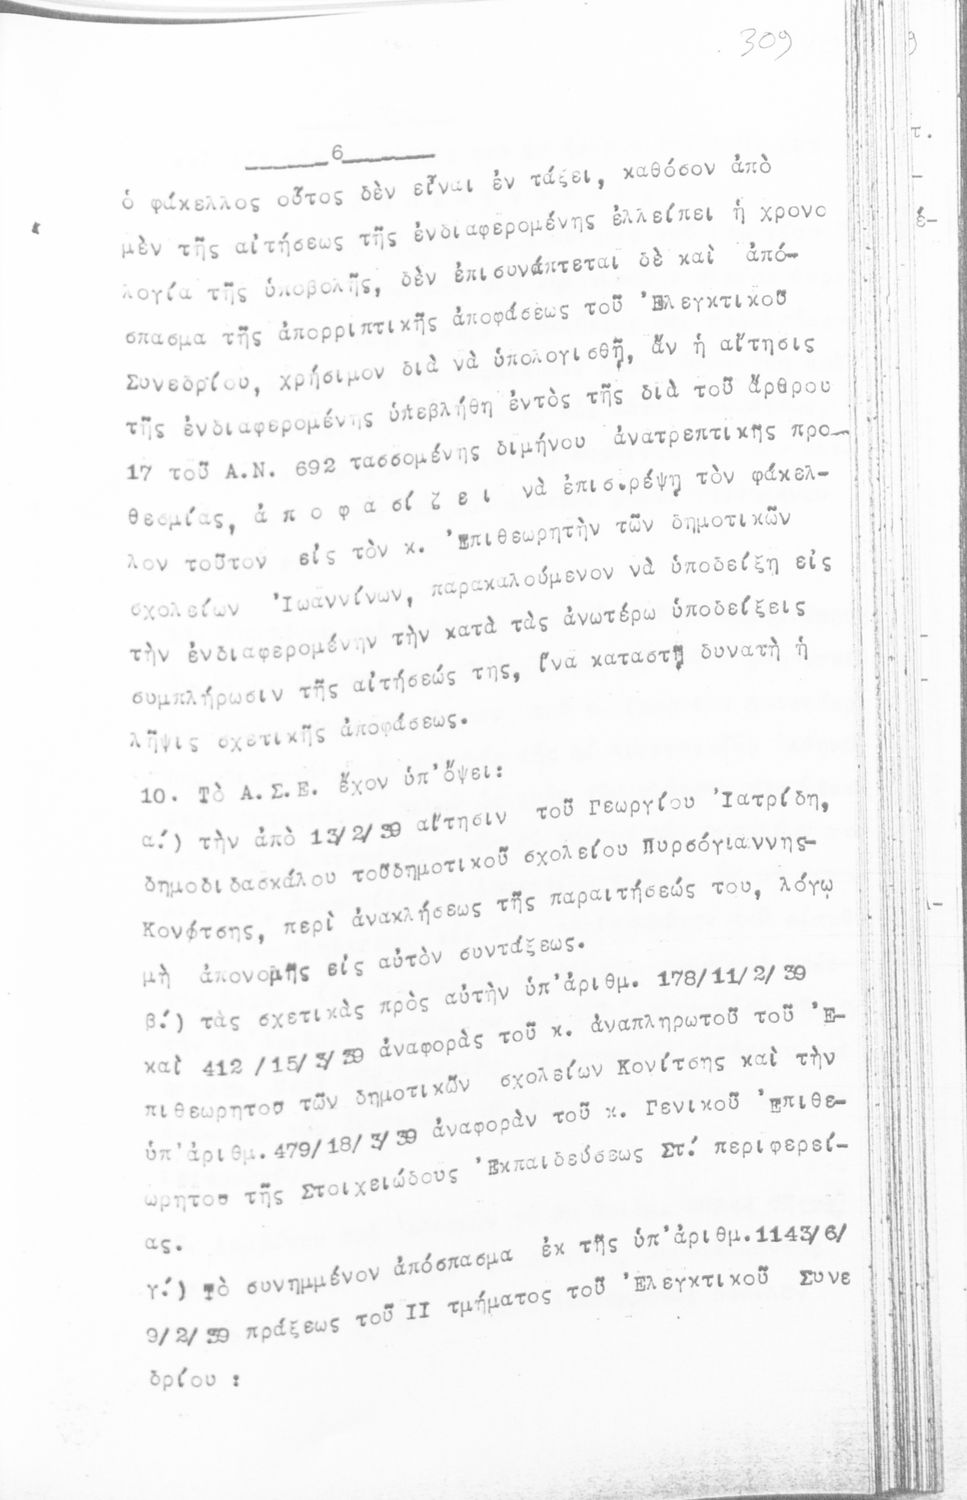 309
6
ὁ φάκελλος οὗτος δὲν εἶναι ἐν τάξει, καθόσον ἀπὸ
μὲν τῆς αἰτήσεως τῆς ἐνδιαφερομένης ἐλλείπει ἡ χρονο
λογία τῆς ὑποβολῆς, δὲν ἐπισυνάπτεται δὲ καὶ ἀπό-
σπασμα τῆς ἀπορριπτικῆς ἀποφάσεως τοῦ Ἐλεγκτικοῦ
Συνεδρίου, χρήσιμον διὰ νὰ ὑπολογισθῇ, ἄν ἡ αἴτησις
τῆς ἐνδιαφερομένης ὑπεβλήθη ἐντὸς τῆς διὰ τοῦ ἄρθρου
17 τοῦ Α.Ν. 692 τασσομένης διμήνου ἀνατρεπτικῆς προ-
θεσμίας, ἀ π ο φ α σί ζ ε ι νὰ ἐπισ.ρέψῃ τὸν φάκελ-
λον τοῦτον εἰς τὸν κ. Ἐπιθεωρητὴν τῶν δημοτικῶν
σχολείων Ἰωαννίνων, παρακαλούμενον νὰ ὑποδείξη εἰς
τὴν ἐνδιαφερομένην τὴν κατὰ τὰς ἀνωτέρω ὑποδείξεις
συμπλήρωσιν τῆς αἰτήσεώς της, ἵνα καταστῇ δυνατὴ ἡ
λῆψις σχετικῆς ἀποφάσεως.
10. Τὸ Α.Σ.Ε. ἔχον ὑπ'ὄψει:
α.') τὴν ἀπὸ 13/2/39 αἴτησιν τοῦ Γεωργίου Ἰατρίδη,
δημοδιδασκάλου τοῦδημοτικοῦ σχολείου Πυρσόγιαννης-
Κονίτσης, περὶ ἀνακλήσεως τῆς παραιτήσεώς του, λόγῳ
μὴ ἀπονομῆς εἰς αὐτὸν συντάξεως.
β.') τὰς σχετικὰς πρὸς αὐτὴν ὑπ'ἀριθμ. 178/11/2/39
καὶ 412/15/3/39 ἀναφορὰς τοῦ κ. ἀναπληρωτοῦ τοῦ Ἐ-
πιθεωρητοῦ τῶν δημοτικῶν σχολείων Κονίτσης καὶ τὴν
ὑπ'ἀριθμ.479/18/3/39 ἀναφορὰν τοῦ κ. Γενικοῦ Ἐπιθε-
ωρητοῦ τῆς Στοιχειώδους Ἐκπαιδεύσεως Στ.' περιφερεί-
ας.
γ.') τὸ συνημμένον ἀπόσπασμα ἐκ τῆς ὑπ'ἀριθμ.1143/6/
9/2/39 πράξεως τοῦ ΙΙ τμήματος τοῦ Ἐλεγκτικοῦ Συνε
δρίου :